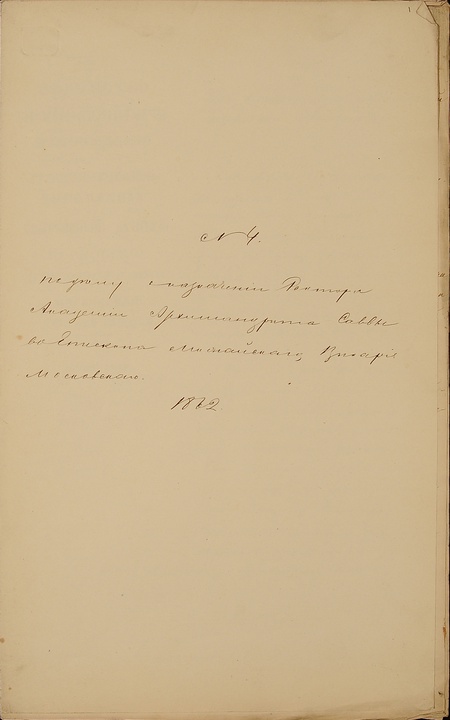 № 4.
по делу о назначении Ректора
Академии Архимандрита Саввы
во Епископа Можайскаго, Викарія
Московскаго.
1862.